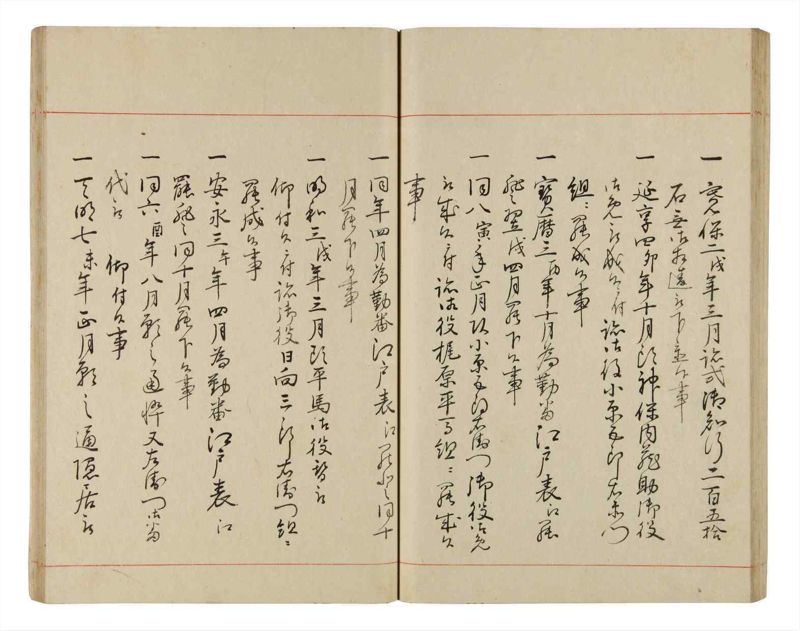 一 寛保二戌年三月跡式御知行二百五拾
石無相違被下置候事
一 延享四卯年十月頭神保内蔵助御役
御免被成候付跡御役小原五郎右衛門
組ニ罷成候事
一 寳暦三酉年十月為勤番江戸表江罷
登翌戌四月罷下候事
一 同八寅年正月頭小原五郎右衛門御役御免
被成候付跡御役梶原平馬組ニ罷成候
事
一 同年四月為勤番江戸表江罷登同十
月罷下候事
一 明和三戌年三月頭平馬御役替被
仰付候付跡御役日向三郎右衛門組ニ
罷成候事
一 安永三午年四月為勤番江戸表江
罷登同十月罷下候事
一 同六酉年八月願之通忰又左衛門御番
代被 仰付候事
一 天明七未年正月願之通隠居被